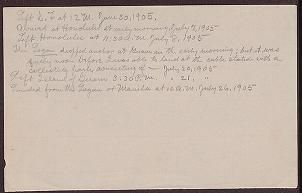 Left S. F. at 12 M. June 30, 1905.
Arrived at Honolulu at early morning July 7, 1905
Left Honolulu at 11:30 A.M. July 8, 1905
The Logan dropped anchor at Guam in the early morning, but it was
fully noon before I was able to land at the cable station with a
collecting party consisting of — July 20, 1905
Left Island of Guam 3:30 P.M. " 21, "
Landed from the Logan at Manila at 10 A.M. July 26, 1905